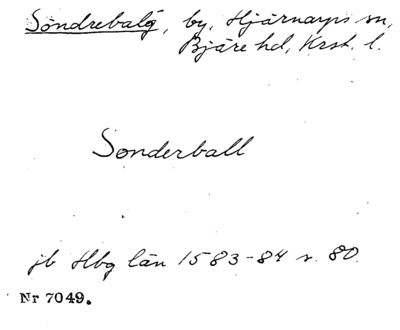 Söndrebalg, by, Hjärnarps sn,
Bjäre hd, Krst. l.
Sonderball
jb Hbg län 1583-84 s. 80.
Nr 7049.